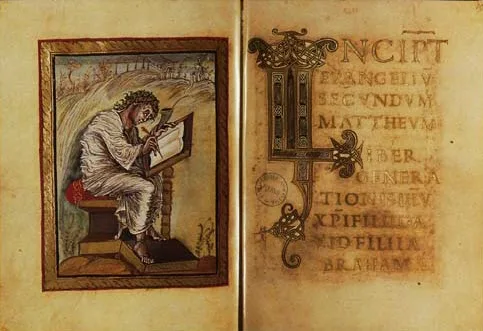 INCIPT
EVANGELIU
SECUNDUM
MATTHEUM
LIBER
GENERA
TIONIS IHU
XPI FILII DA
UID FILII A
BRAHAM